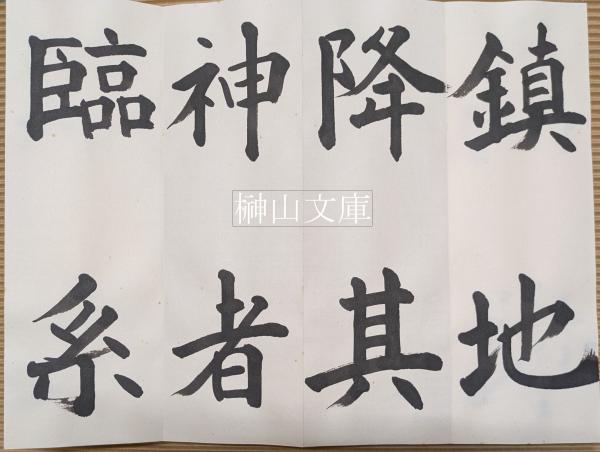 鎮地
降其
神者
臨糸
榊山文庫